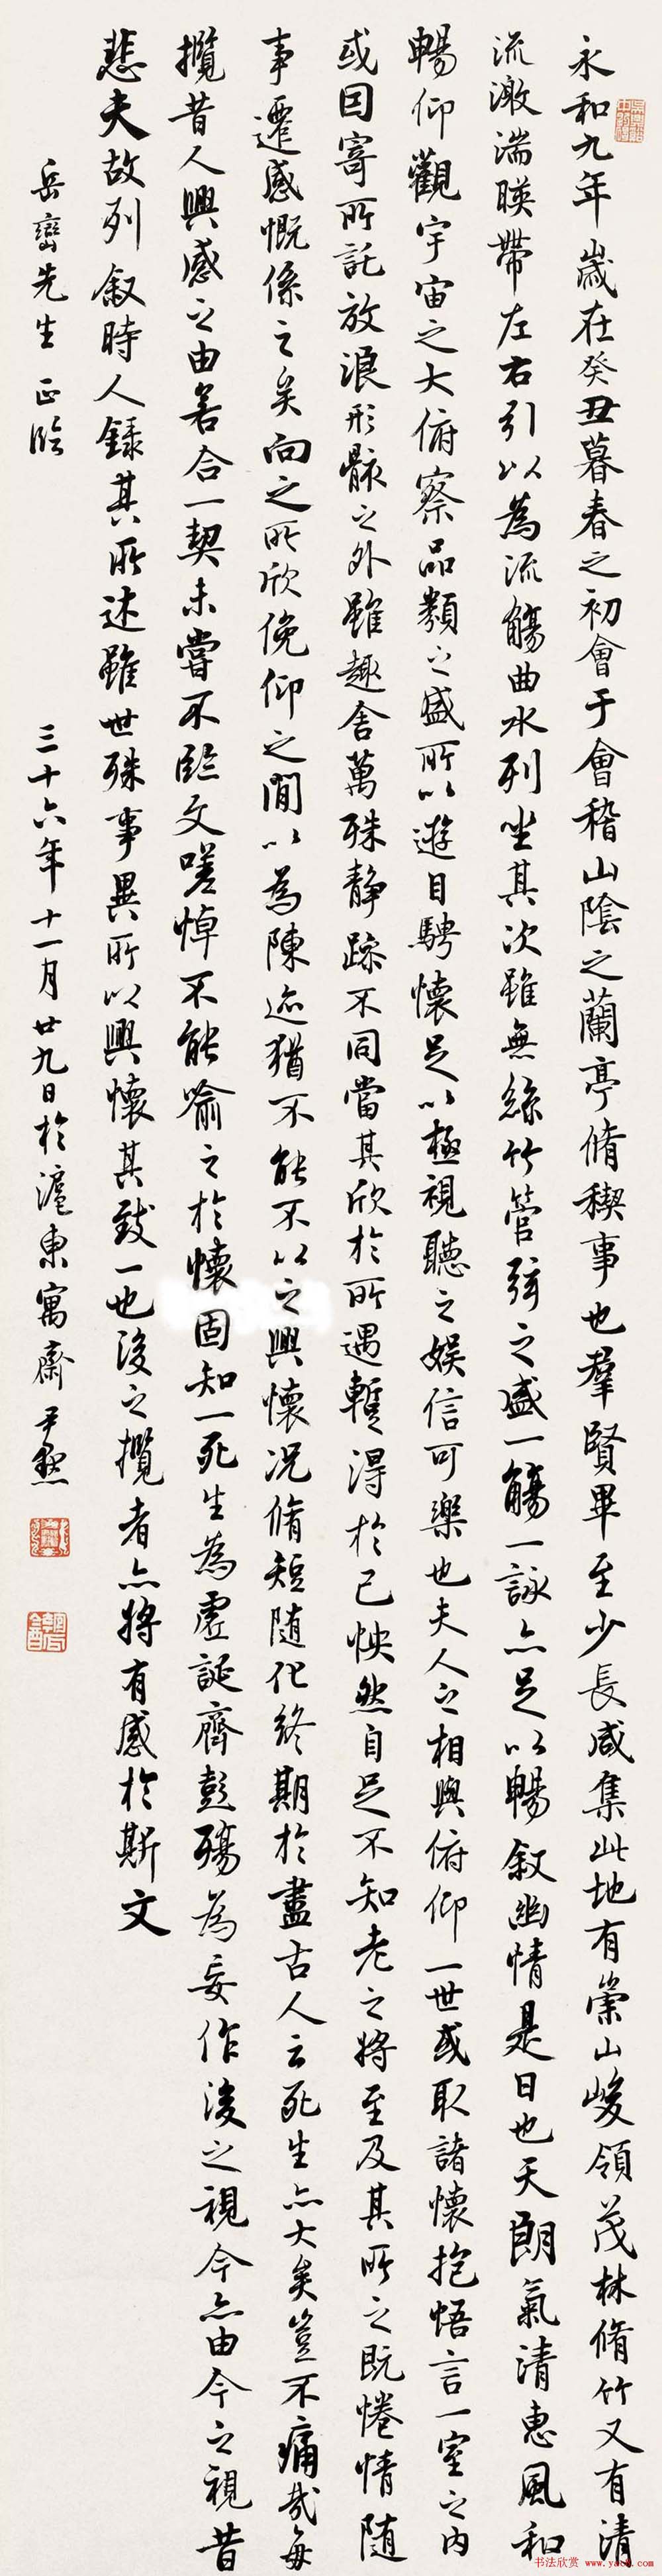 永和九年歲在癸丑暮春之初會于會稽山陰之蘭亭脩稧事也羣賢畢至少長咸集此地有崇山峻領茂林脩竹又有清
流激湍暎帶左右引以為流觴曲水列坐其次雖無絲竹管弦之盛一觴一詠亦足以暢叙幽情是日也天朗氣清惠風和
暢仰觀宇宙之大俯察品類之盛所以遊目騁懷足以極視聽之娛信可樂也夫人之相與俯仰一世或取諸懷抱悟言一室之内
或因寄所託放浪形骸之外雖趣舍萬殊静躁不同當其欣於所遇暫得於己怏然自足不知老之將至及其所之既惓情随
事遷感慨係之矣向之所欣俛仰之閒以為陳迹猶不能不以之興懷况脩短随化終期於盡古人云死生亦大矣豈不痛哉每
攬昔人興感之由若合一契未嘗不臨文嗟悼不能喻之於懷固知一死生為虛誕齊彭殤為妄作後之視今亦由今之視昔
悲夫故列叙時人錄其所述雖世殊事異所以興懷其致一也後之攬者亦將有感於斯文
岳巒先生 正臨
三十六年十一月廿九日於滬東寓齋 尹默
书法欣赏 www.yac8.com